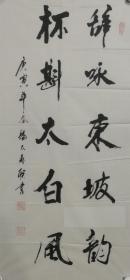 辞咏東坡韵
杯斟太白風
庚寅年
書